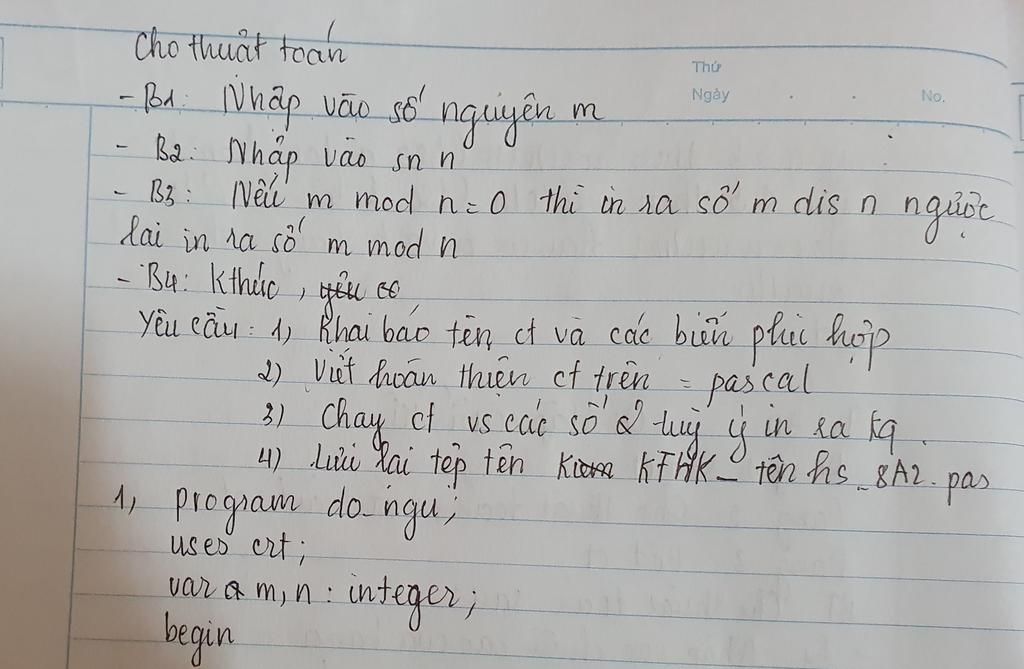 Cho thuật toán
Thứ
Ngày . . No.
- B1: Nhập vào số nguyên m
- B2: Nhập vào sn n
- B3: Nếu m mod n = 0 thì in ra số m dis n ngược
lại in ra số m mod n
- B4: Kthúc, yêu cầ
Yêu cầu: 1) Khai báo tên ct và các biến phù hợp
2) Viết hoàn thiện ct trên = pascal
3) Chạy ct vs các số ở tuỳ ý in ra kq.
4) Lưu lại tệp tên Kiem KTHK_ tên hs_8A2.pas
1, program do_ngu;
uses crt;
var a m, n : integer;
begin